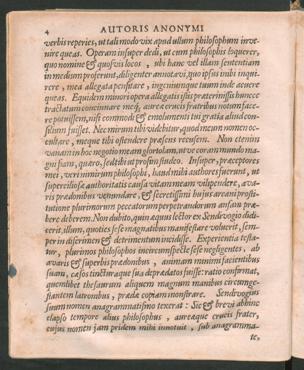 4 AUTORIS ANONYMI
verbis reperies, ut tali modo vix apud ullum philosophum inve-
nire queas. Operam insuper dedi, ut cum philosophis loquerer,
quo nomine & quosvis locos, ubi hanc vel illam sententiam
in medium proferunt, diligenter annotavi, quo ipsus mihi inqui-
rere, mea allegata pensitare, ingeniumque tuum inde acuere
queas. Equidem minori opera allegatis istis prætermissis huncce
tractatum concinnare meq; aureæ crucis fratribus notum face-
re potuissem, nisi commodi & emolumenti tui gratia aliud con-
silium fuisset. Nec mirum tibi videbitur, quod meum nomen oc-
cultare, meque tibi ostendere præsens recusem. Non etenim
vanam in hoc negotio meam gloriolam, ut ve coram mundo ma-
gni fiam, quæro, sed tibi ut prosim studeo. Insuper, præceptores
mei, veri nimirum philosophi, haud mihi authores fuerunt, ut
superciliosæ authoritatis causa vitam meam vilipendere, ava-
ris prædonibus venundare, & secretissimi hujus arcani prosti-
tutione plurimorum peccatorum perpetrandorum ansam præ-
bere deberem. Non dubito, quin æquus lector ex Sendivogio didi-
cerit, illum, quoties se se magnatibus manifestare voluerit, sem-
per in discrimen & detrimentum incidisse. Experientia testa-
tur, plurimos philosophos incircumspecte sese negligentes, ab
avaris & superbis prædonibus, animam minimi facientibus
suam, cæsos tincturaque sua deprædatos fuisse: ratio confirmat,
quemlibet thesaurum aliquem magnum manibus circumge-
stantem latronibus, prædæ copiam monstrare. Sendivogius
suum nomen anagrammatismo texerat: Sic & brevi abhinc
elapso tempore alius philosophus, aureæque crucis frater,
cujus nomen jam pridem mihi innotuit, sub anagramma-
te,